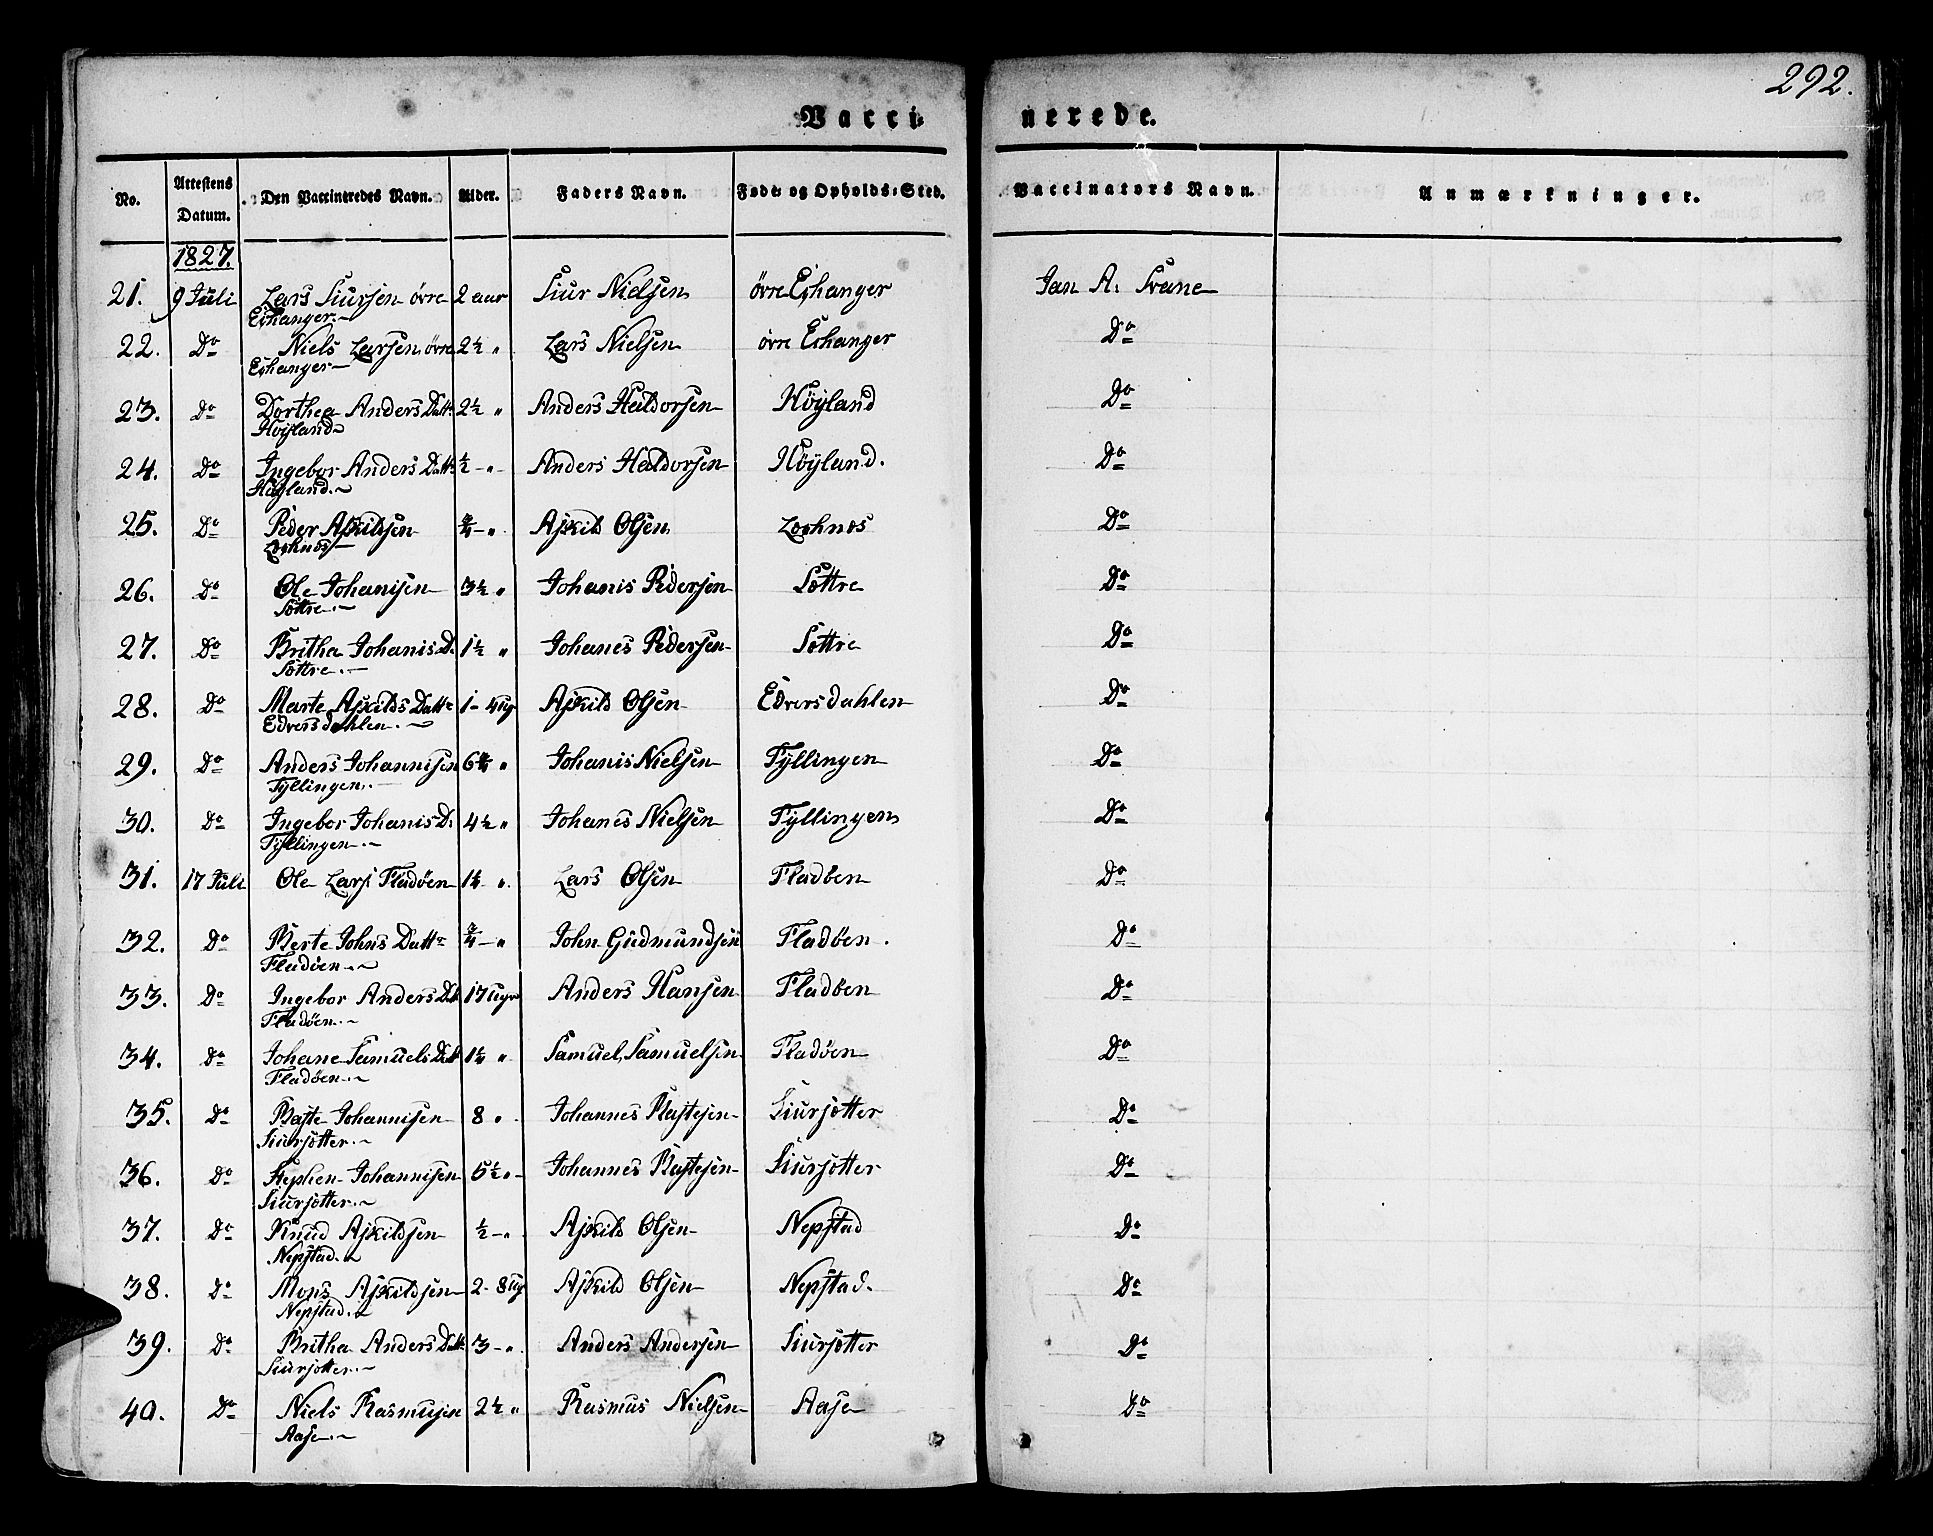 292.
Vacci- nerede.
No. Attestens Datum. Den Vaccineredes Navn. Alder. Faders Navn. Føde- og Opholds-Sted. Vaccinators Navn. Anmærkninger.
1827.
21. 9 Juli Lars Siursen övre 2 aar Siur Nielsen övre Eshanger Jan A. Svane
Eshanger.
22. Do Niels Larsen övre 2½ " Lars Nielsen övre Eshanger Do
Eshanger
23. Do Dorthea Anders Datt. 2½ " Anders Haldorsen Höyland Do
Höyland
24. Do Ingebor Anders Datt. ½ - " Anders Haldorsen Höyland. Do
Höyland.
25. Do Peder Askildsen ¾ - " Askild Olsen Do
26. Do Ole Johanisen 3½ " Johanis Pedersen Söttre Do
Söttre.
27. Do Britha Johanis D. 1½ " Johanes Pedersen Söttre Do
Söttre.
28. Do Marte Askilds Datt. 1 - 4 Ug Askild Olsen Edversdahlen Do
Edversdahlen.
29. Do Anders Johannisen 6¾ " Johanis Nielsen Tyllingen Do
Tyllingen.
30. Do Ingebor Johanis D. 4½ " Johanes Nielsen Tyllingen Do
Tyllingen.
31. 17 Juli Ole Lars Fladöen 1¼ " Lars Olsen Fladöen Do
32. Do Berte Johns Datt. ¾ - " John Gudmundsen Fladöen. Do
Fladöen.
33. Do Ingebor Anders Dat 17 Uger Anders Hansen Fladöen Do
Fladöen.
34. Do Johane Samuels Datt 1¼ " Samuel Samuelsen Fladöen Do
Fladöen.
35. Do Raste Johannisen 8 " Johannes Rastesen Siursötter Do
Siursötter.
36. Do Stephen Johannisen 5½ " Johannes Rastesen Siursötter Do
Siursötter.
37. Do Knud Askildsen ½ - " Askild Olsen Nepstad Do
Nepstad.
38. Do Mons Askildsen 2 - 8 Ug Askild Olsen Nepstad. Do
Nepstad.
39. Do Britha Anders Datt. 3 - " Anders Andersen Siursötter Do
Siursötter.
40. Do Niels Rasmusen 2½ " Rasmus Nielsen Aase Do
Aase.